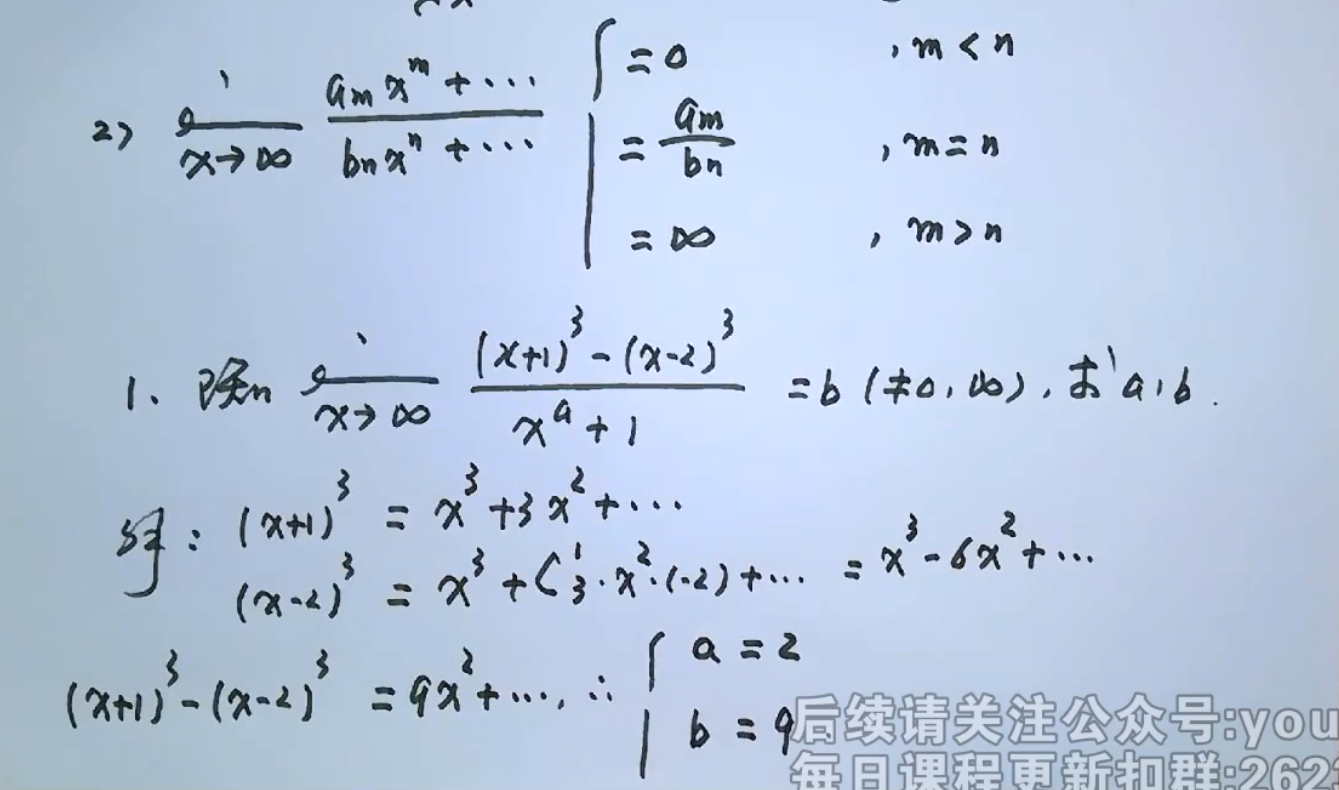 2) lim x→∞ (aₘxᵐ+···)/(bₙxⁿ+···) { =0 , m<n
= aₘ/bₙ , m=n
=∞ , m>n
1. 设 lim x→∞ ((x+1)³-(x-2)³)/(xᵃ+1) =b (≠0,∞), 求a,b.
解: (x+1)³ = x³+3x²+···
(x-2)³ = x³+C₃¹·x²·(-2)+··· = x³-6x²+···
(x+1)³-(x-2)³ =9x²+···, ∴ { a=2
b=9
后续请关注公众号:you
每日课程更新扣群:262